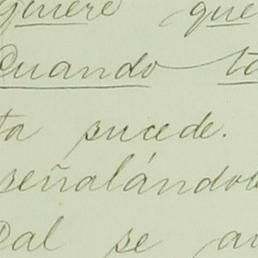 quiere que
Cuando ta
ta sucede.
señalándol
Dal se au